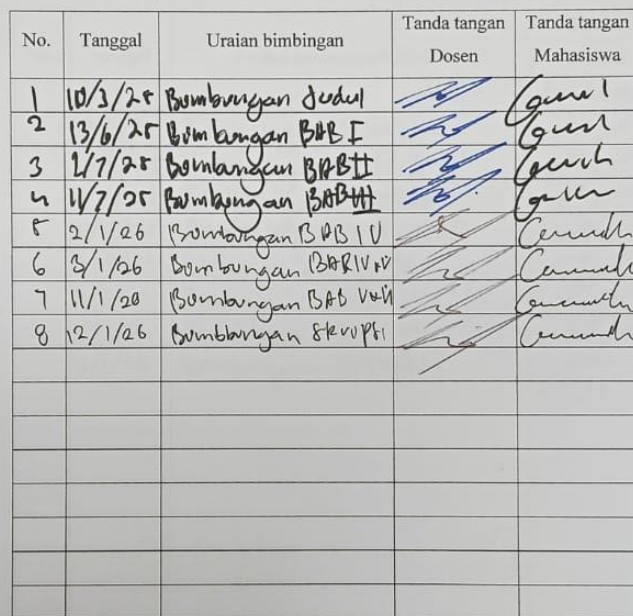 No. Tanggal Uraian bimbingan Tanda tangan Dosen Tanda tangan Mahasiswa
1 10/3/25 Bimbingan Judul
2 13/6/25 Bimbingan BAB I
3 2/7/25 Bimbingan BAB II
4 11/7/25 Bimbingan BAB III
5 2/1/26 Bimbingan BAB IV
6 3/1/26 Bimbingan BAB IV
7 11/1/26 Bimbingan BAB
8 12/1/26 Bimbingan Skripsi